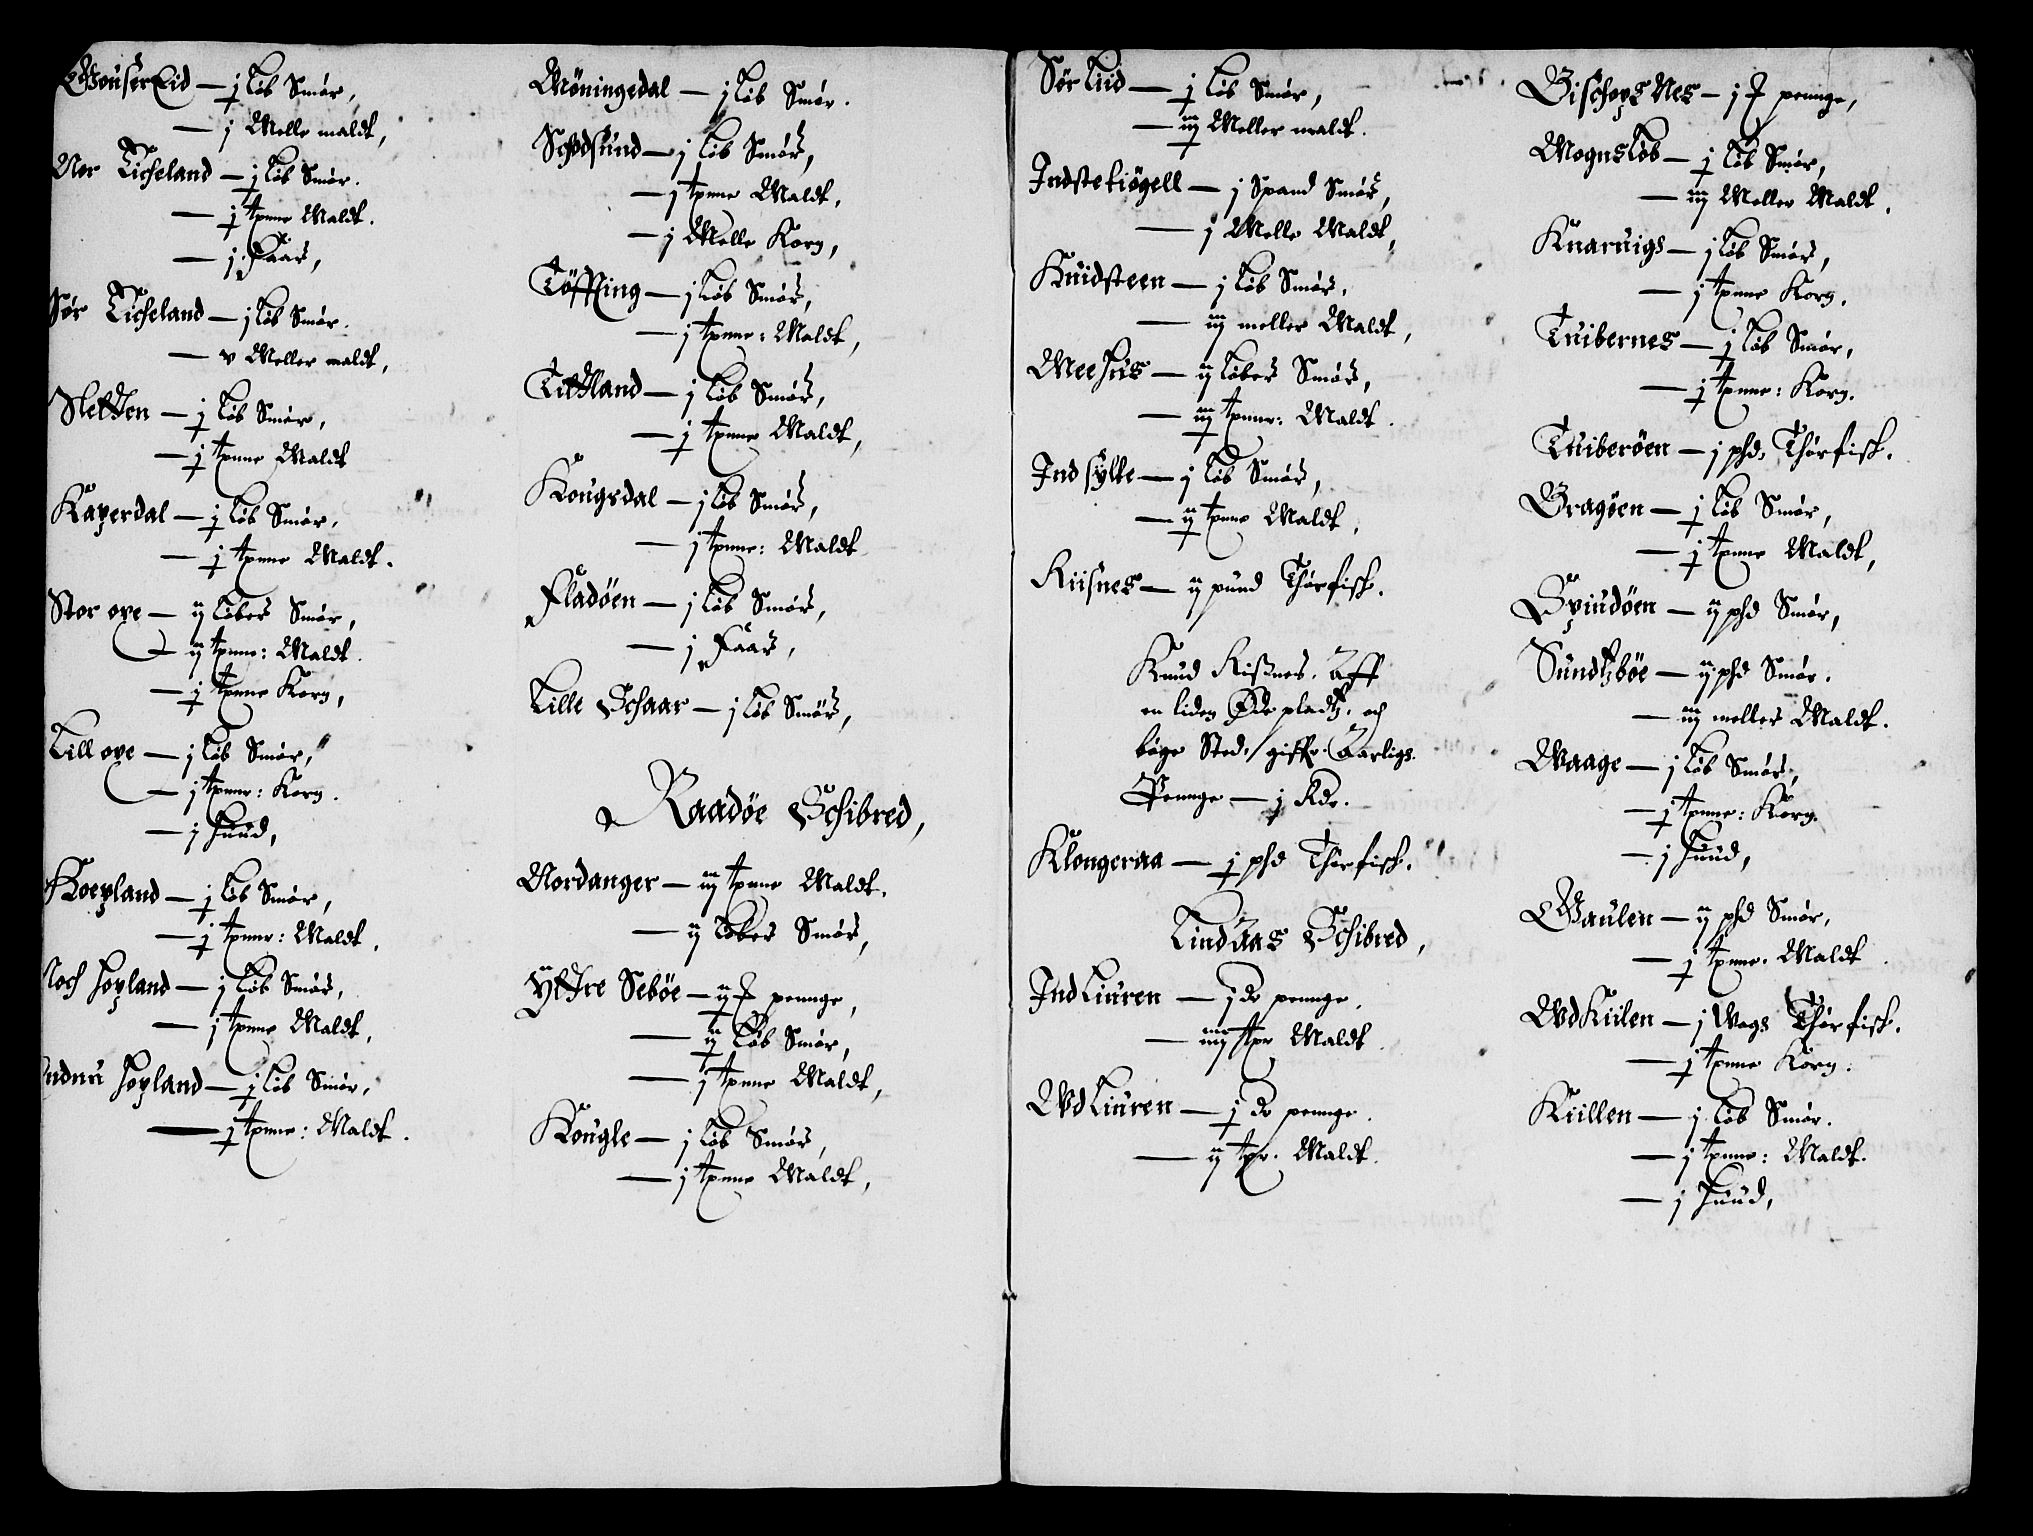 Gouser Eid — j Løb Smør,
— j Melle maldt,
Nor Ticheland — j Løb Smør.
— j tønne Maldt.
— j Faar,
Sør Ticheland — j Løb Smør.
— v Meller maldt,
Sletten — j Løb Smør,
— j tønne Maldt
Kaperdal — j Løb Smør,
— j tønne Maldt.
Stor øye — ij Løber Smør,
— ij tønne: Maldt.
— j tønne Korn,
Lill øye — j Løb Smør,
— j tønne: Korn.
— j Huud,
Koepland — j Løb Smør,
— j tønne: Maldt.
Noch Hopland — j Løb Smør,
— j tønne Maldt,
Hopland — j Løb Smør,
— j tønne: Maldt.
Møningedal — j Løb Smør.
Schodsund — j Løb Smør,
— j tønne Maldt,
— j Melle Korn,
Töffting — j Løb Smør,
— j tønne: Maldt,
Tittland — j Løb Smør,
— j tønne Maldt,
Kougsdal — j Løb Smør,
— j tønne: Maldt
Fladöen — j Løb Smør,
— j Faar,
Lille Schaar — j Løb Smør,
Raadøe Schibred,
Nordanger — iij tønne Maldt.
— ij Løber Smør,
Yttre Seböe — ij pennge,
— ij Løb Smør,
— j tønne Maldt,
Kougle — j Løb Smør,
— j tønne Maldt,
Sør Liid — j Løb Smør,
— iij Meller maldt.
Indstetiögell — j Spand Smør,
— j Melle Maldt,
Kuidsteen — j Løb Smør,
— iij meller Maldt,
Mee Huus — ij Løber Smør,
— iij tønner: Maldt.
Ind sylte — j Løb Smør,
— ij tønne Maldt,
Riisnes — ij pund Thørfisk.
Knud Rißnes. Aff
en liden Øde pladtz. och
böge Sted, giffr. Aarligs.
Pennge — j Rdr.
Klongeraa — j phd Thørfisk.
Lindaas Schibred,
Ind Liuren — j dr pennge.
— iiij tpr Maldt.
Vd Liuren — j dr pennge.
— ij tpr. Maldt.
Bischops Nes — j pennge,
Mognsløb — j Løb Smør,
— iij Meller Maldt.
Knaruigs — j Løb Smør,
— j tønne Korn.
Tuibernes — j Løb Smør,
— j tønne: Korn.
Tuiberöen — j phd. Thørfisk.
Bragöen — j Løb Smør,
— j tønne Maldt,
Spindöen — ij phd Smør,
Sundtzböe — ij phd Smør.
— iij meller Maldt.
Waage — j Løb Smør,
— j tønne: Korn.
— j Huud,
Gaulen — ij phd Smør,
— j tønne. Maldt.
Vd Kiilen — j Wogs Thørfisk.
— j tønne Korn.
Kiillen — j Løb Smør.
— j tønne: Maldt.
— j Huud,